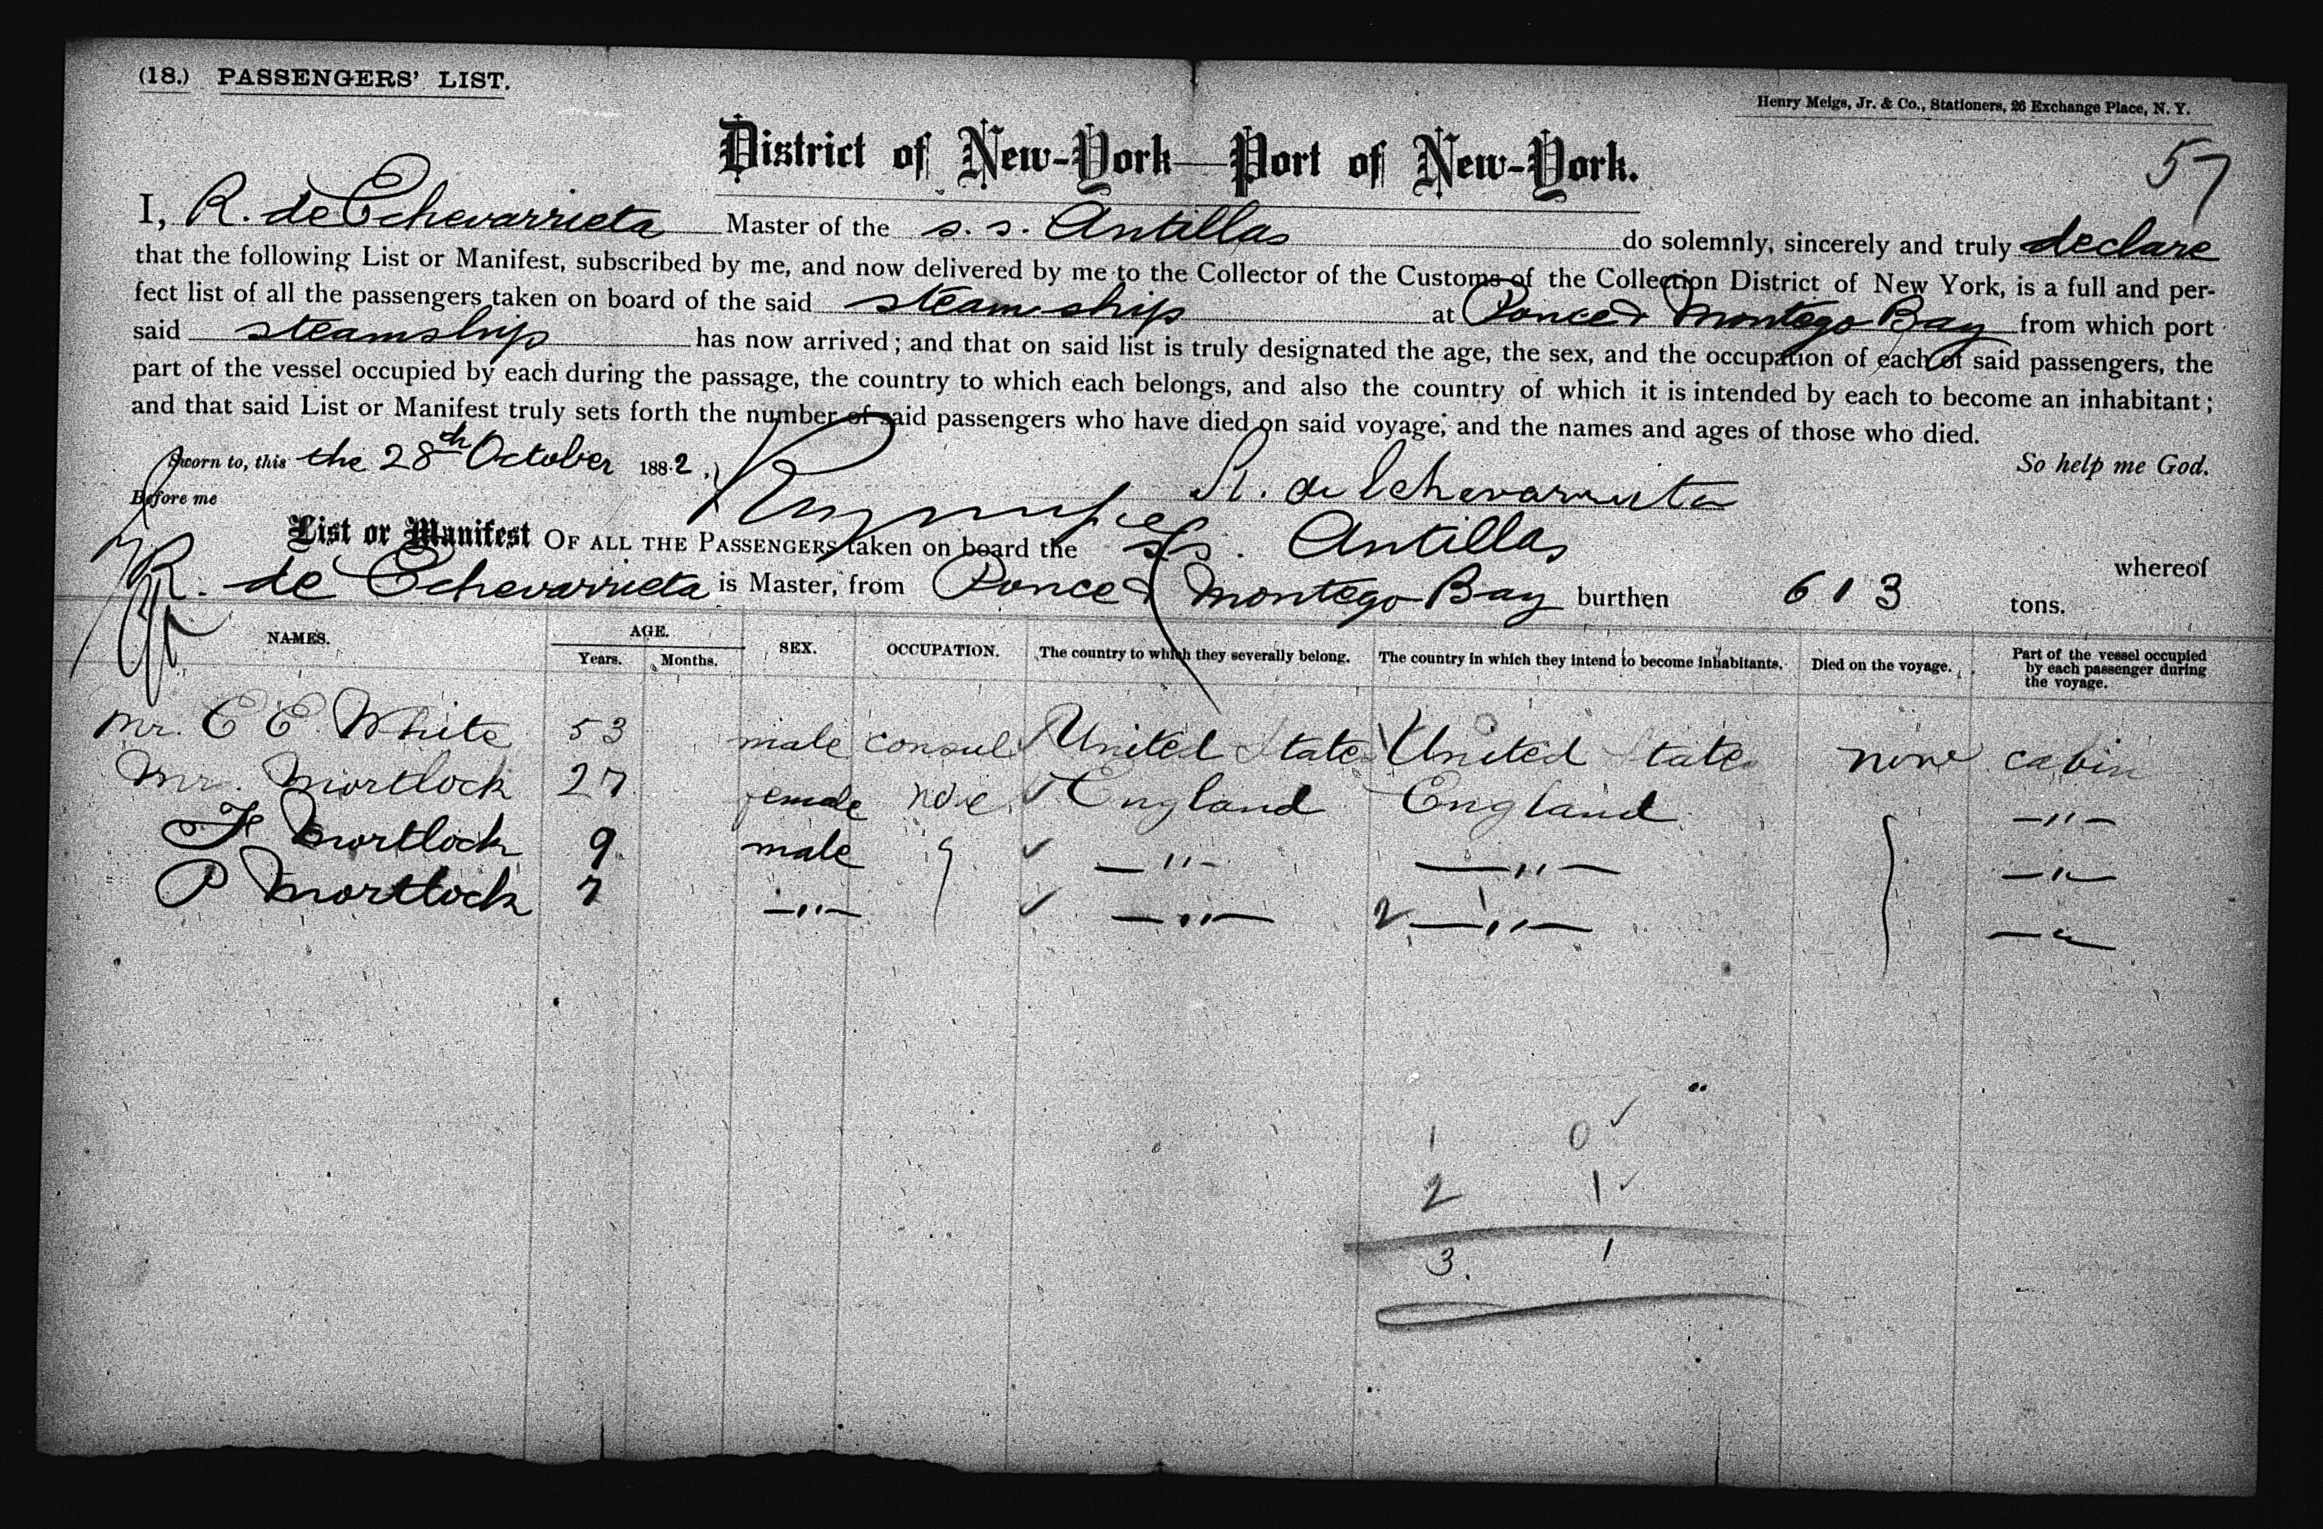 (18.) PASSENGERS' LIST.
Henry Meigs, Jr. & Co., Stationers, 26 Exchange Place, N. Y.
57
District of New-York—Port of New-York.
I, R. de Echevarrieta Master of the s. s. Antillas do solemnly, sincerely and truly declare
that the following List or Manifest, subscribed by me, and now delivered by me to the Collector of the Customs of the Collection District of New York, is a full and per-
fect list of all the passengers taken on board of the said steamship at Ponce & Montego Bay from which port
said steamship has now arrived; and that on said list is truly designated the age, the sex, and the occupation of each of said passengers, the
part of the vessel occupied by each during the passage, the country to which each belongs, and also the country of which it is intended by each to become an inhabitant;
and that said List or Manifest truly sets forth the number of said passengers who have died on said voyage, and the names and ages of those who died.
Sworn to, this the 28th October 1882. So help me God.
Before me R. de Echevarrieta
List or Manifest OF ALL THE PASSENGERS taken on board the s.s. Antillas whereof
R. de Echevarrieta is Master, from Ponce & Montego Bay burthen 613 tons.
NAMES. AGE. Years. Months. SEX. OCCUPATION. The country to which they severally belong. The country in which they intend to become inhabitants. Died on the voyage. Part of the vessel occupied by each passenger during the voyage.
Mr. C E. White 53 male consul United States United States none cabin
Mr. Mortlock 27 female none England England —"—
F Mortlock 9 male —"— —"— —"—
P Mortlock 7 —"— —"— 2 —"— —"—
1 0
2 1
3. 1